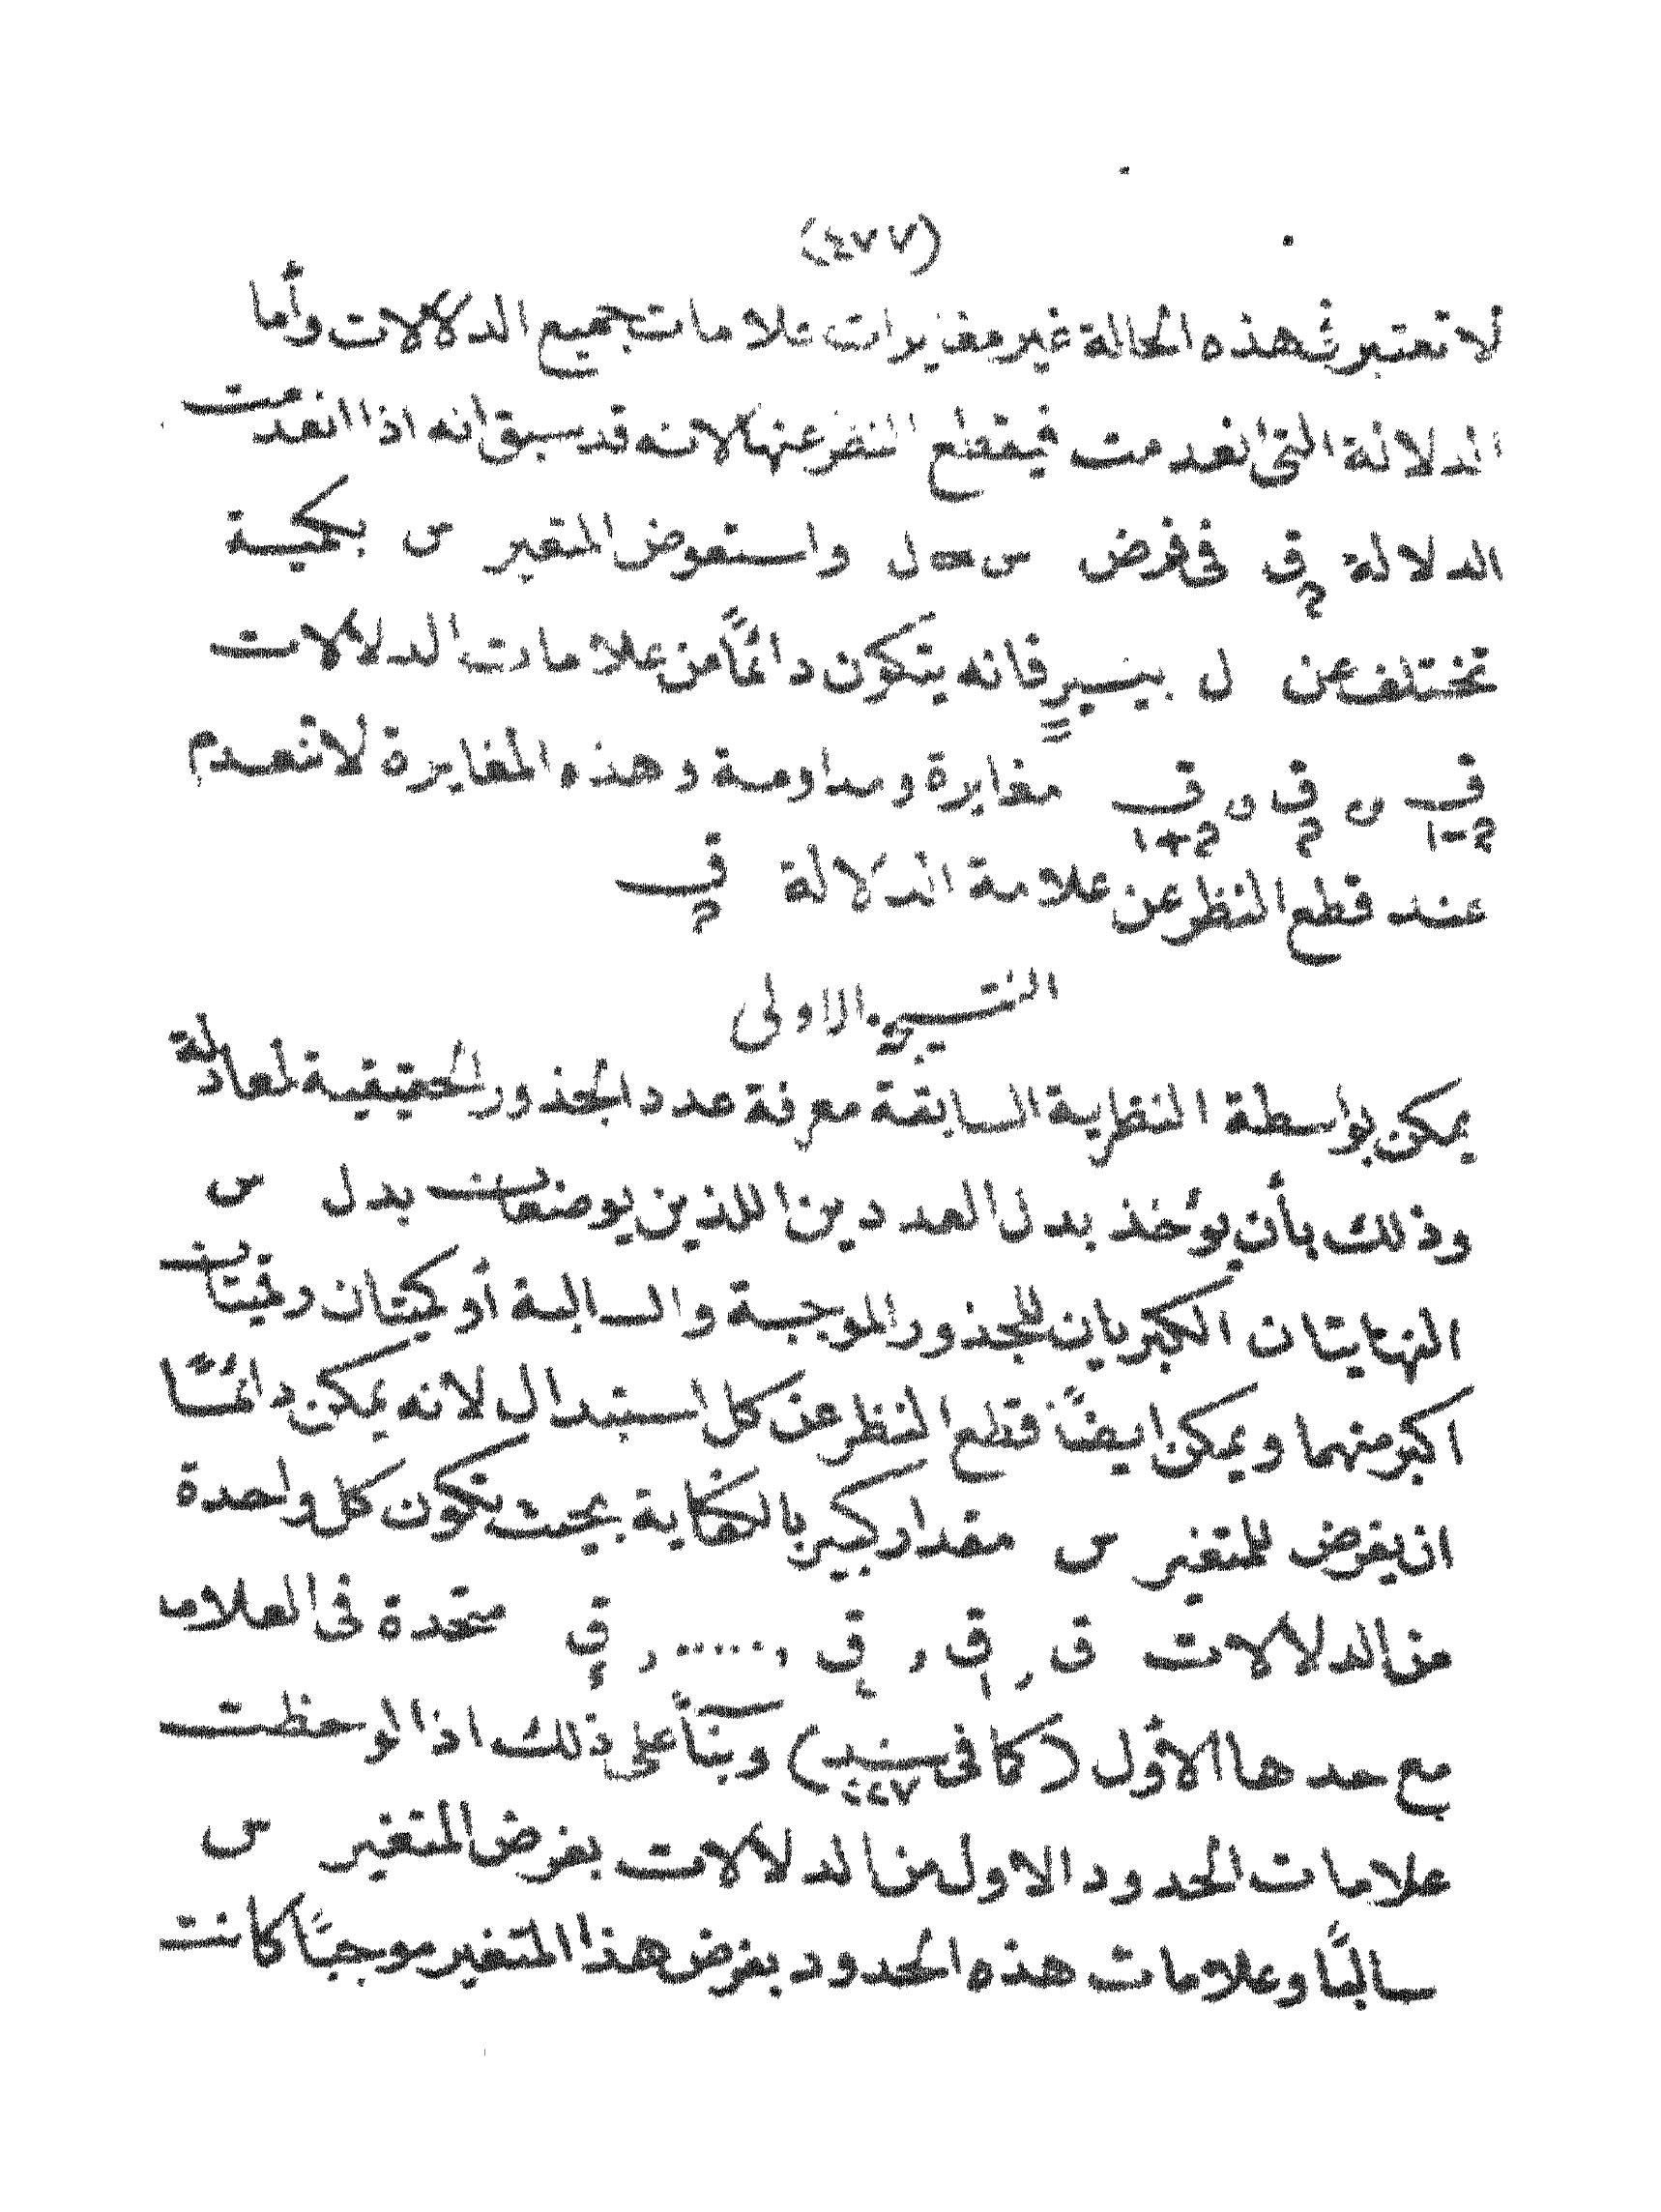 (٤٧٧)
لا تعتبر فى هذه الحالة غير مغيرات علامات جميع الدلالات وأما
الدلالة التى انعدمت فيقطع النظر عنها لانه قد سبق انه اذا انعدمت
الدلالة ق م فى فرض س = ل واستعوض المتغير س بكمية
تختلف عن ل بيسير فانه يتكون دائمًا من علامات الدلالات
ق م-١ و ق م و ق م+١ مغايرة ومداومة وهذه المغايرة لا تنعدم
عند قطع النظر عن علامة الدلالة ق م
النتيجة الاولى
يمكن بواسطة النظرية السابقة معرفة عدد الجذور الحقيقية لمعادلة
وذلك بأن يؤخذ بدل العددين اللذين يوضعان بدل س
النهايتان الكبريان للجذور الموجبة والسالبة أو كميتان رقميتان
اكبر منهما ويمكن ايضًا قطع النظر عن كل استبدال لانه يمكن دائمًا
ان يفرض للمتغير س مقدار كبير بالكفاية بحيث تكون كل واحدة
من الدلالات ق , ق ١ , ق ٢ , ..... , ق م متحدة فى العلامة
مع حدها الأول (كما فى سند ٢٢٧) وبنآ على ذلك اذا لوحظت
علامات الحدود الاول من الدلالات بفرض المتغير س
سالبًا وعلامات هذه الحدود بفرض هذا المتغير موجبًا كانت